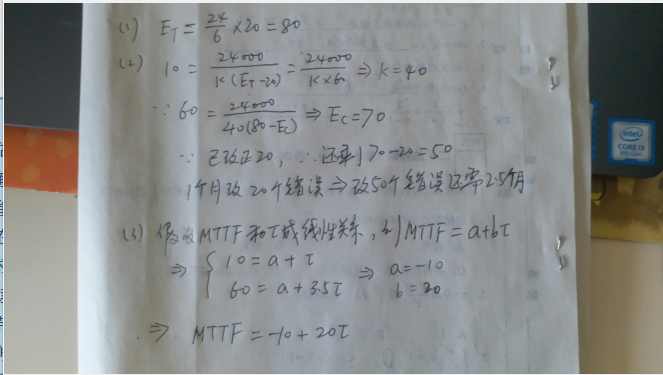 (1) E_T = 24/6 ×20 = 80
(2) 10 = 24000/K(E_T-20) = 24000/K×60 ⇒ K=40
∵ 60 = 24000/40(80-E_C) ⇒ E_C=70
∵ 已改正20, ∴ 还剩 70-20=50
1个月改20个错误 ⇒ 改50个错误还需2.5个月
(3) 假设MTTF和τ成线性关系, 则 MTTF = a+bτ
⇒ { 10 = a + τ ⇒ a=-10
60 = a + 3.5τ b=20
⇒ MTTF = -10 + 20τ
intel
CORE i3